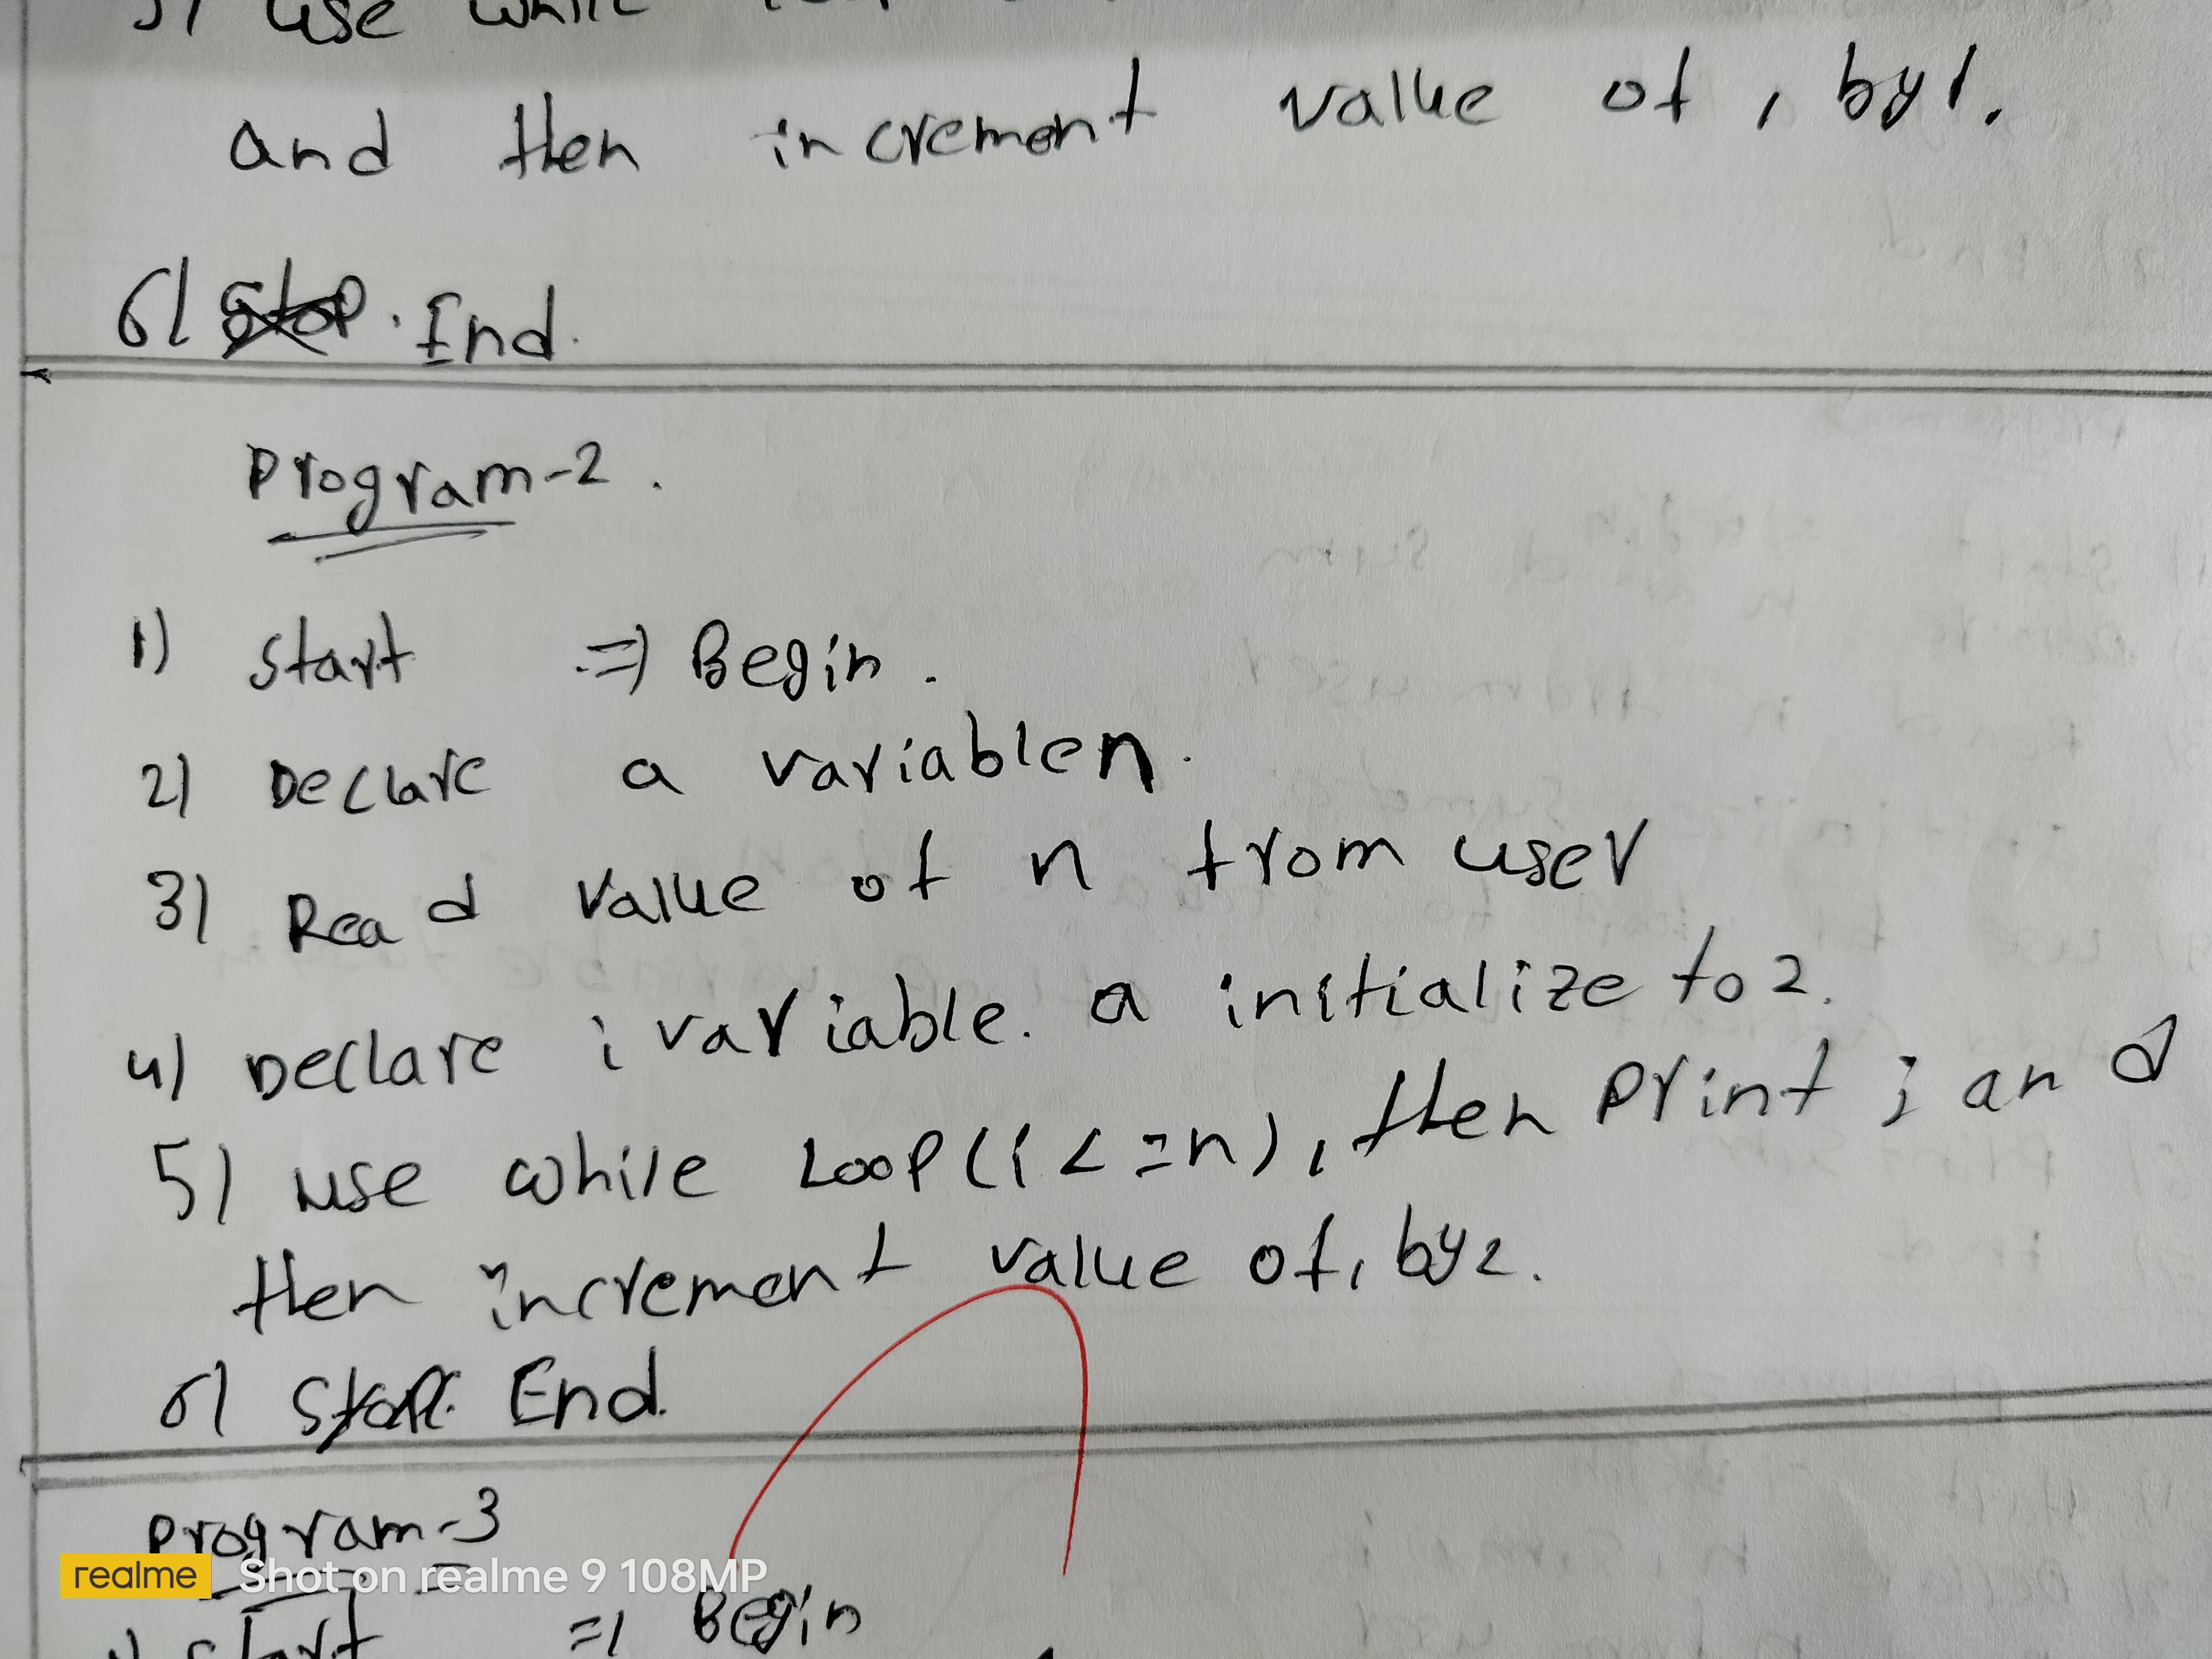 5) use while
and then increment value of i by 1.
6) Stop. End.
Program-2.
1) Start => Begin.
2) Declare a variable n.
3) Read value of n from user
4) Declare i variable. a initialize to 2.
5) use while Loop (i <= n), then print i and
then increment value of i by 2.
6) Stop. End.
Program-3
1) Start => Begin
realme Shot on realme 9 108MP